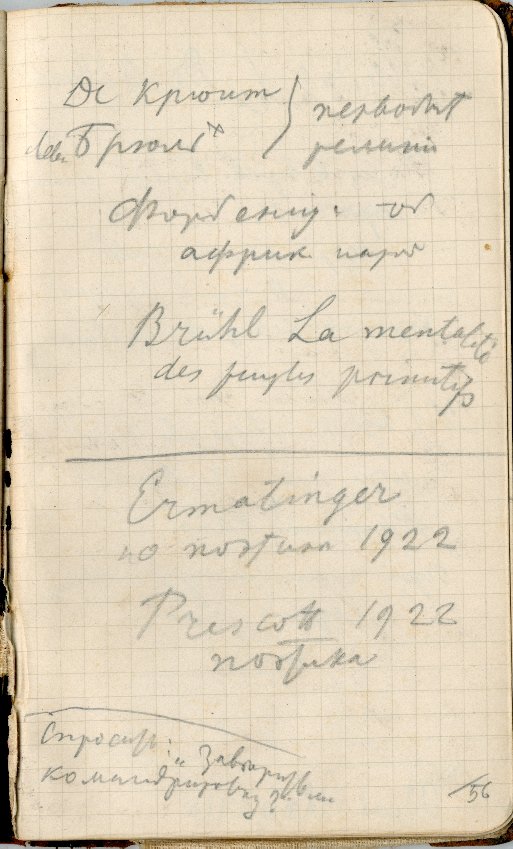 Де Крюит
Леви Брюль х
первобыт
религии
Форбениус об
африк. нар
Brühl La mentalité
des peuples primitifs
Ermatinger
по поэтике 1922
Prescott 1922
поэтика
Спросить:
командировку
56